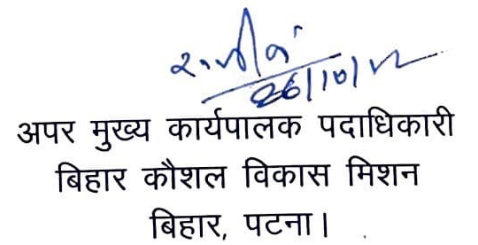 26/10/22
अपर मुख्य कार्यपालक पदाधिकारी
बिहार कौशल विकास मिशन
बिहार, पटना।